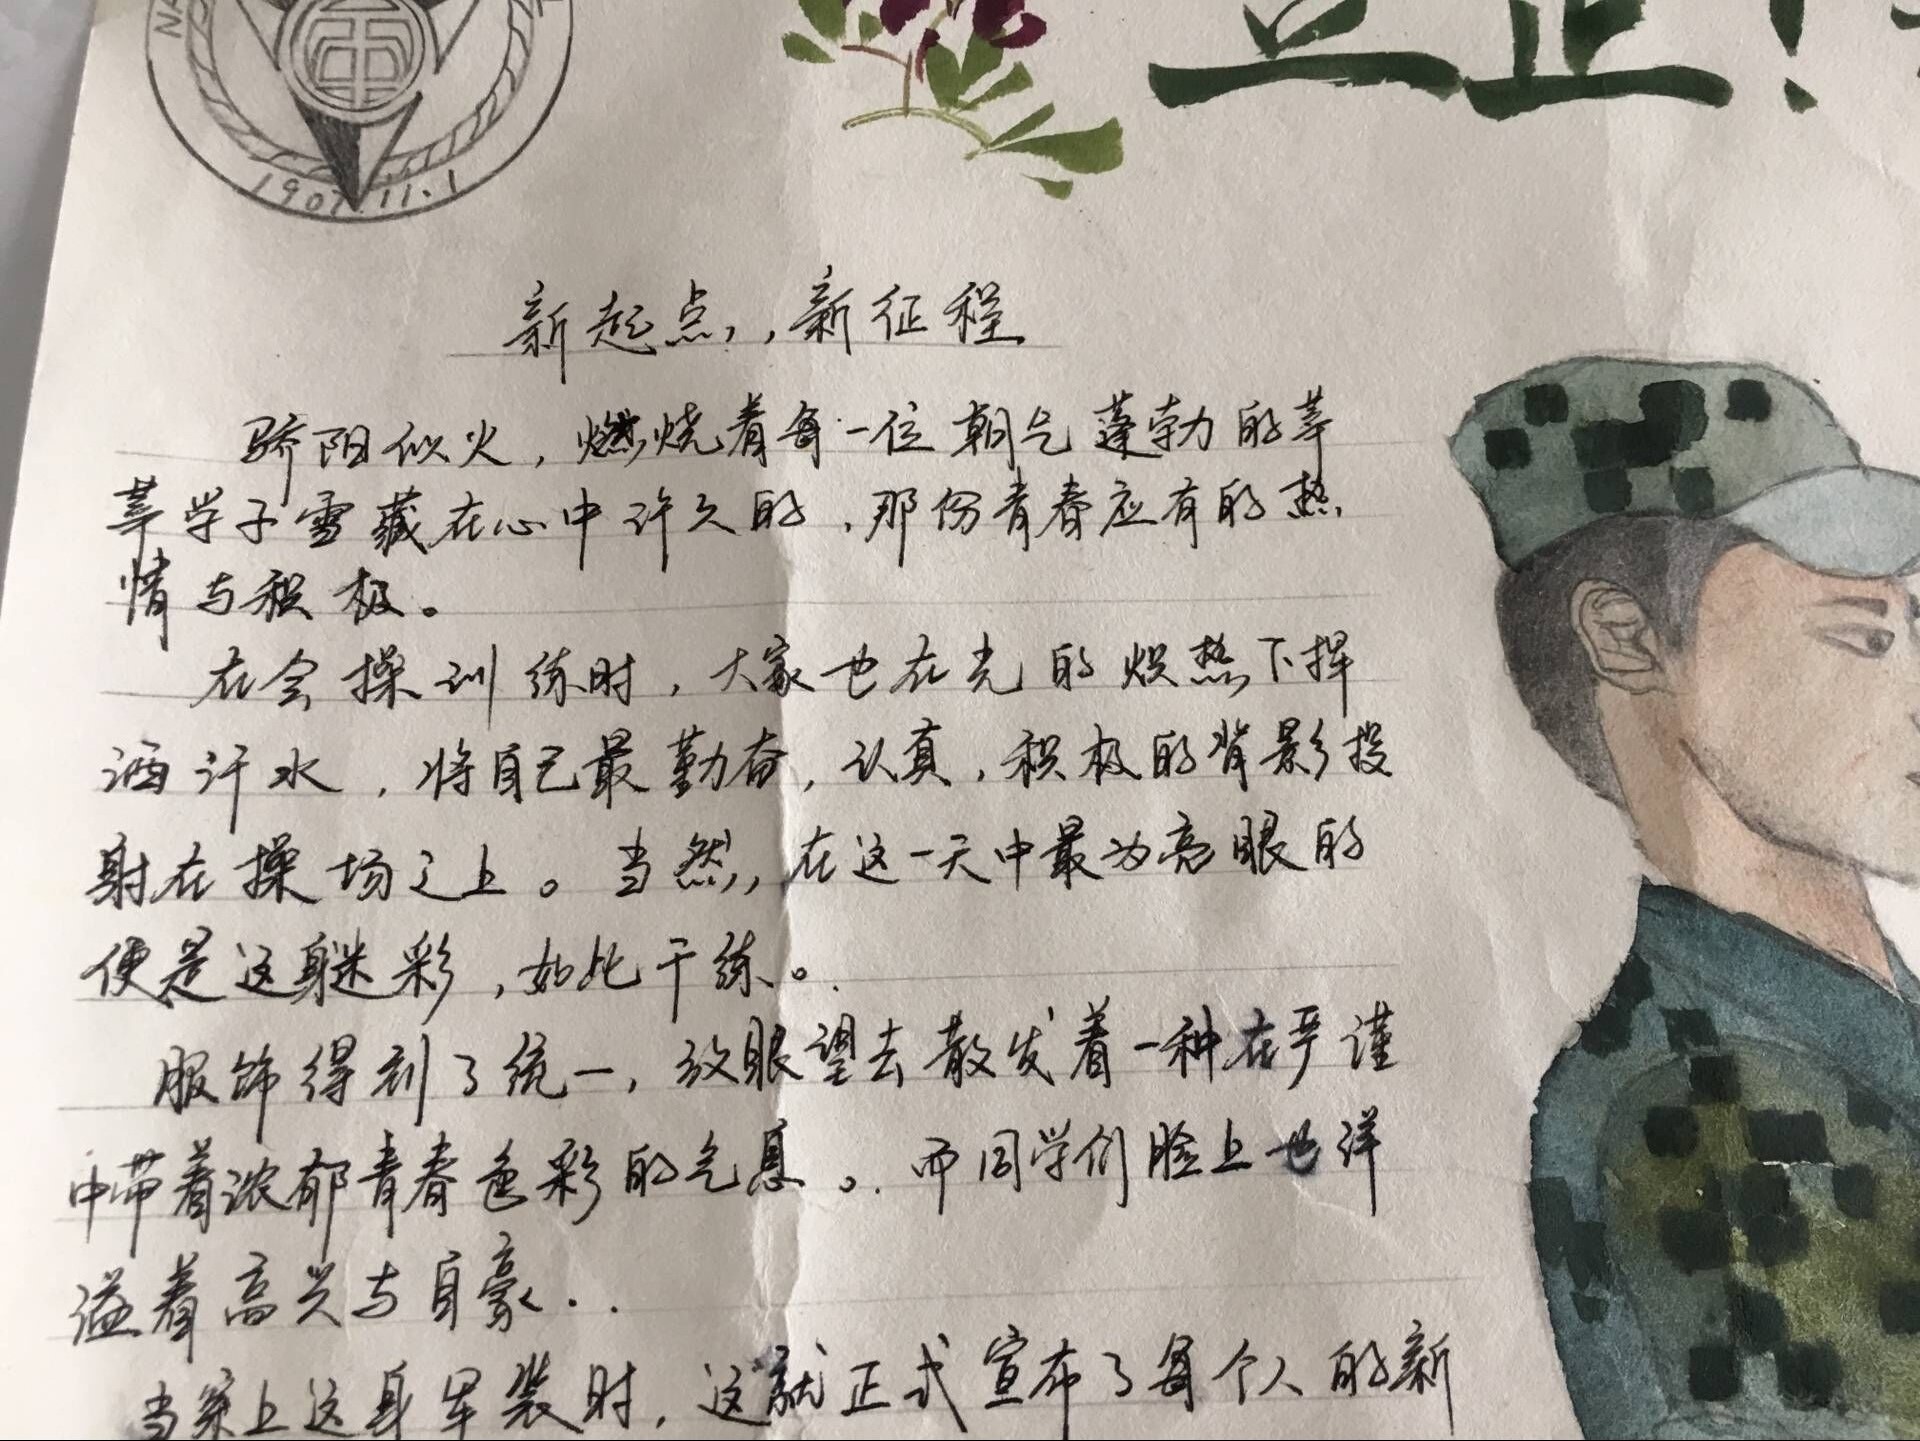 NA
1907.11.1
立正！
新起点，，新征程
骄阳似火，燃烧着每一位朝气蓬勃的莘
莘学子雪藏在心中许久的，那份青春应有的热
情与积极。
在会操训练时，大家也在光的炽热下挥
洒汗水，将自己最勤奋，认真，积极的背影投
射在操场之上。当然，在这一天中最为亮眼的
便是这身迷彩，如此干练。
服饰得到了统一，放眼望去散发着一种在严谨
中带着浓郁青春色彩的气息。而同学们脸上也洋
溢着高兴与自豪..
当穿上这身军装时，这就正式宣布了每个人的新